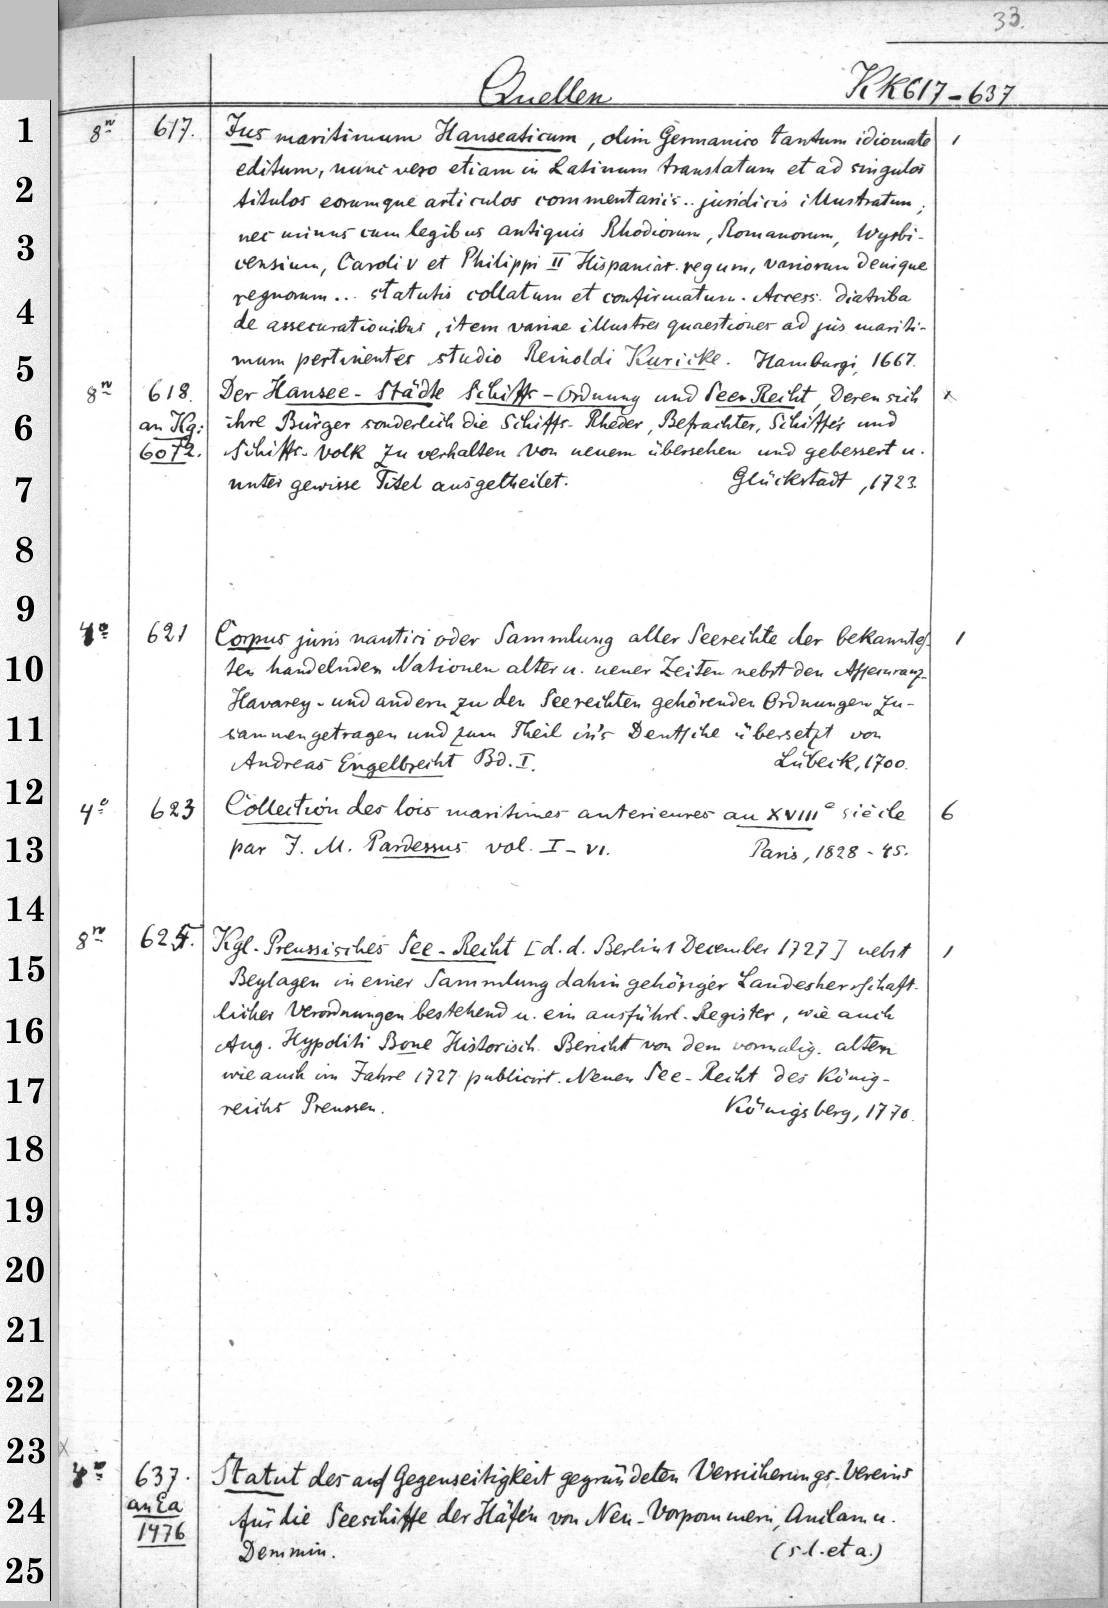 33.
Quellen Kk 617-637
1 8º 617. Jus maritimum Hanseaticum, olim Germanico tantum idiomate 1
editum, nunc vero etiam in Latinum translatum et ad singulos
2 titulos eorumque articulos commentariis.. juridicis illustratum;
3 nec minus cum legibus antiquis Rhodiorum, Romanorum, Wysbi-
vensium, Caroli V et Philippi II Hispaniar. regum, variorum denique
4 regnorum... statutis collatum et confirmatum. Access. diatriba
de assecurationibus, item variae illustres quaestiones ad jus mariti-
5 mum pertinentes studio Reinoldi Kuricke. Hamburgi, 1667.
8º 618. Der Hansee-Städte Schiffs-Ordnung und Seen Recht, Deren sich x
6 an Kg: ihre Bürger sonderlich die Schiffs-Rheder, Befrachter, Schiffer und
6072. Schiffs-Volk zu verhalten von neuem übersehen und gebessert u.
7 unter gewisse Titel ausgetheilet. Glückstadt, 1723.
8
9
4º 621 Corpus juris nautici oder Sammlung aller Seerechte der bekanntes- 1
10 ten handelnden Nationen alter u. neuer Zeiten nebst den Assecuranz-
Havarey- und andern zu den Seerechten gehörenden Ordnungen zu-
11 sammengetragen und zum Theil in's Deutsche übersetzt von
Andreas Engelbrecht Bd. I. Lübeck, 1700.
12 4º 623 Collection des lois maritimes anterieures au XVIIIe siècle 6
13 par J. M. Pardessus vol. I-VI. Paris, 1828-45.
14
8º 625. Kgl. Preussisches See-Recht [d.d. Berlin 1 December 1727] nebst 1
15 Beylagen in einer Sammlung dahin gehöriger Landesherrschaft-
licher Verordnungen bestehend u. ein ausführl. Register, wie auch
16 Aug. Hypoliti Bone Historisch. Bericht von dem vormalig. alten
17 wie auch im Jahre 1727 publicirt. Neuen See-Recht des König-
reichs Preussen. Königsberg, 1770.
18
19
20
21
22
23 x
4º 637. Statut des auf Gegenseitigkeit gegründeten Versicherungs-Vereins
24 an Ea für die Seeschiffe der Häfen von Neu-Vorpommern, Anclam u.
25 1476 Demmin. (s.l. et a.)